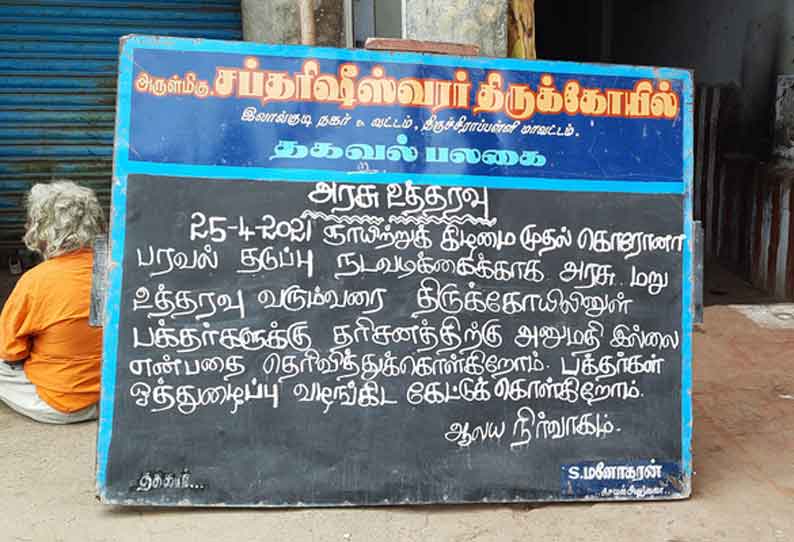 அருள்மிகு. சப்தரிஷீஸ்வரர் திருக்கோயில்
நகர் & வட்டம், திருச்சிராப்பள்ளி மாவட்டம்.
தகவல் பலகை
அரசு உத்தரவு
25-4-2021 ஞாயிற்றுக் கிழமை முதல் கொரோனா
பரவல் தடுப்பு நடவடிக்கைக்காக அரசு மறு
உத்தரவு வரும்வரை திருக்கோயிலினுள்
பக்தர்களுக்கு தரிசனத்திற்கு அனுமதி இல்லை
என்பதை தெரிவித்துக்கொள்கிறோம். பக்தர்கள்
ஒத்துழைப்பு வழங்கிட கேட்டுக் கொள்கிறோம்.
ஆலய நிர்வாகம்.
S.மனோகரன்